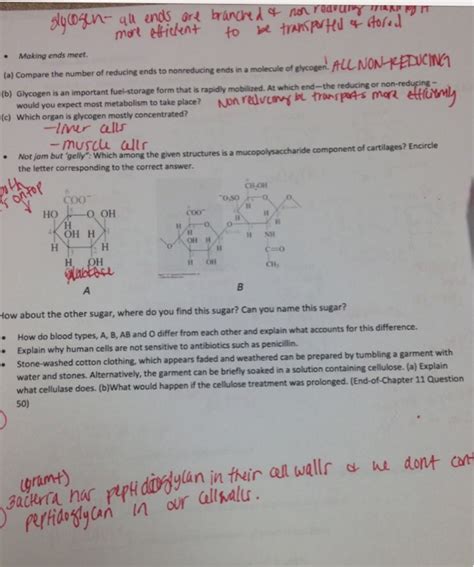 glycogen - all ends are branched & non reducing
more efficient to be transported & stored
• Making ends meet.
(a) Compare the number of reducing ends to nonreducing ends in a molecule of glycogen. ALL NON-REDUCING
(b) Glycogen is an important fuel-storage form that is rapidly mobilized. At which end—the reducing or non-reducing –
would you expect most metabolism to take place? Non reducing transports more efficiently
(c) Which organ is glycogen mostly concentrated?
- liver cells
- muscle cells
• Not jam but "gelly": Which among the given structures is a mucopolysaccharide component of cartilages? Encircle
the letter corresponding to the correct answer.
on top
COO⁻
HO
O
OH
H
OH H
H
H
H OH
glucose
A
CH₂OH
⁻O₃SO
O
COO⁻
O
H
H
H
OH H
H
NH
H
OH
C=O
CH₃
B
How about the other sugar, where do you find this sugar? Can you name this sugar?
• How do blood types, A, B, AB and O differ from each other and explain what accounts for this difference.
• Explain why human cells are not sensitive to antibiotics such as penicillin.
• Stone-washed cotton clothing, which appears faded and weathered can be prepared by tumbling a garment with
water and stones. Alternatively, the garment can be briefly soaked in a solution containing cellulose. (a) Explain
what cellulase does. (b)What would happen if the cellulose treatment was prolonged. (End-of-Chapter 11 Question
50)
(gram+)
Bacteria has peptidoglycan in their cell walls & we dont cont
peptidoglycan in our cellwalls.